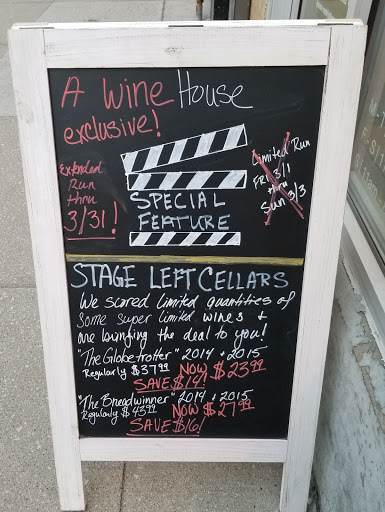 A Wine House
exclusive!
Extended
Run
thru
3/31!
Limited Run
FRI 3/1
thru
Sun 3/3
SPECIAL
FEATURE
STAGE LEFT CELLARS
We scored limited quantities of
some super limited wines +
are bringing the deal to you!
"The Globetrotter" 2014 + 2015
Regularly $37.99 NOW $23.99
SAVE $14!
"The Breadwinner" 2014 + 2015
Regularly $43.99 NOW $27.99
SAVE $16!